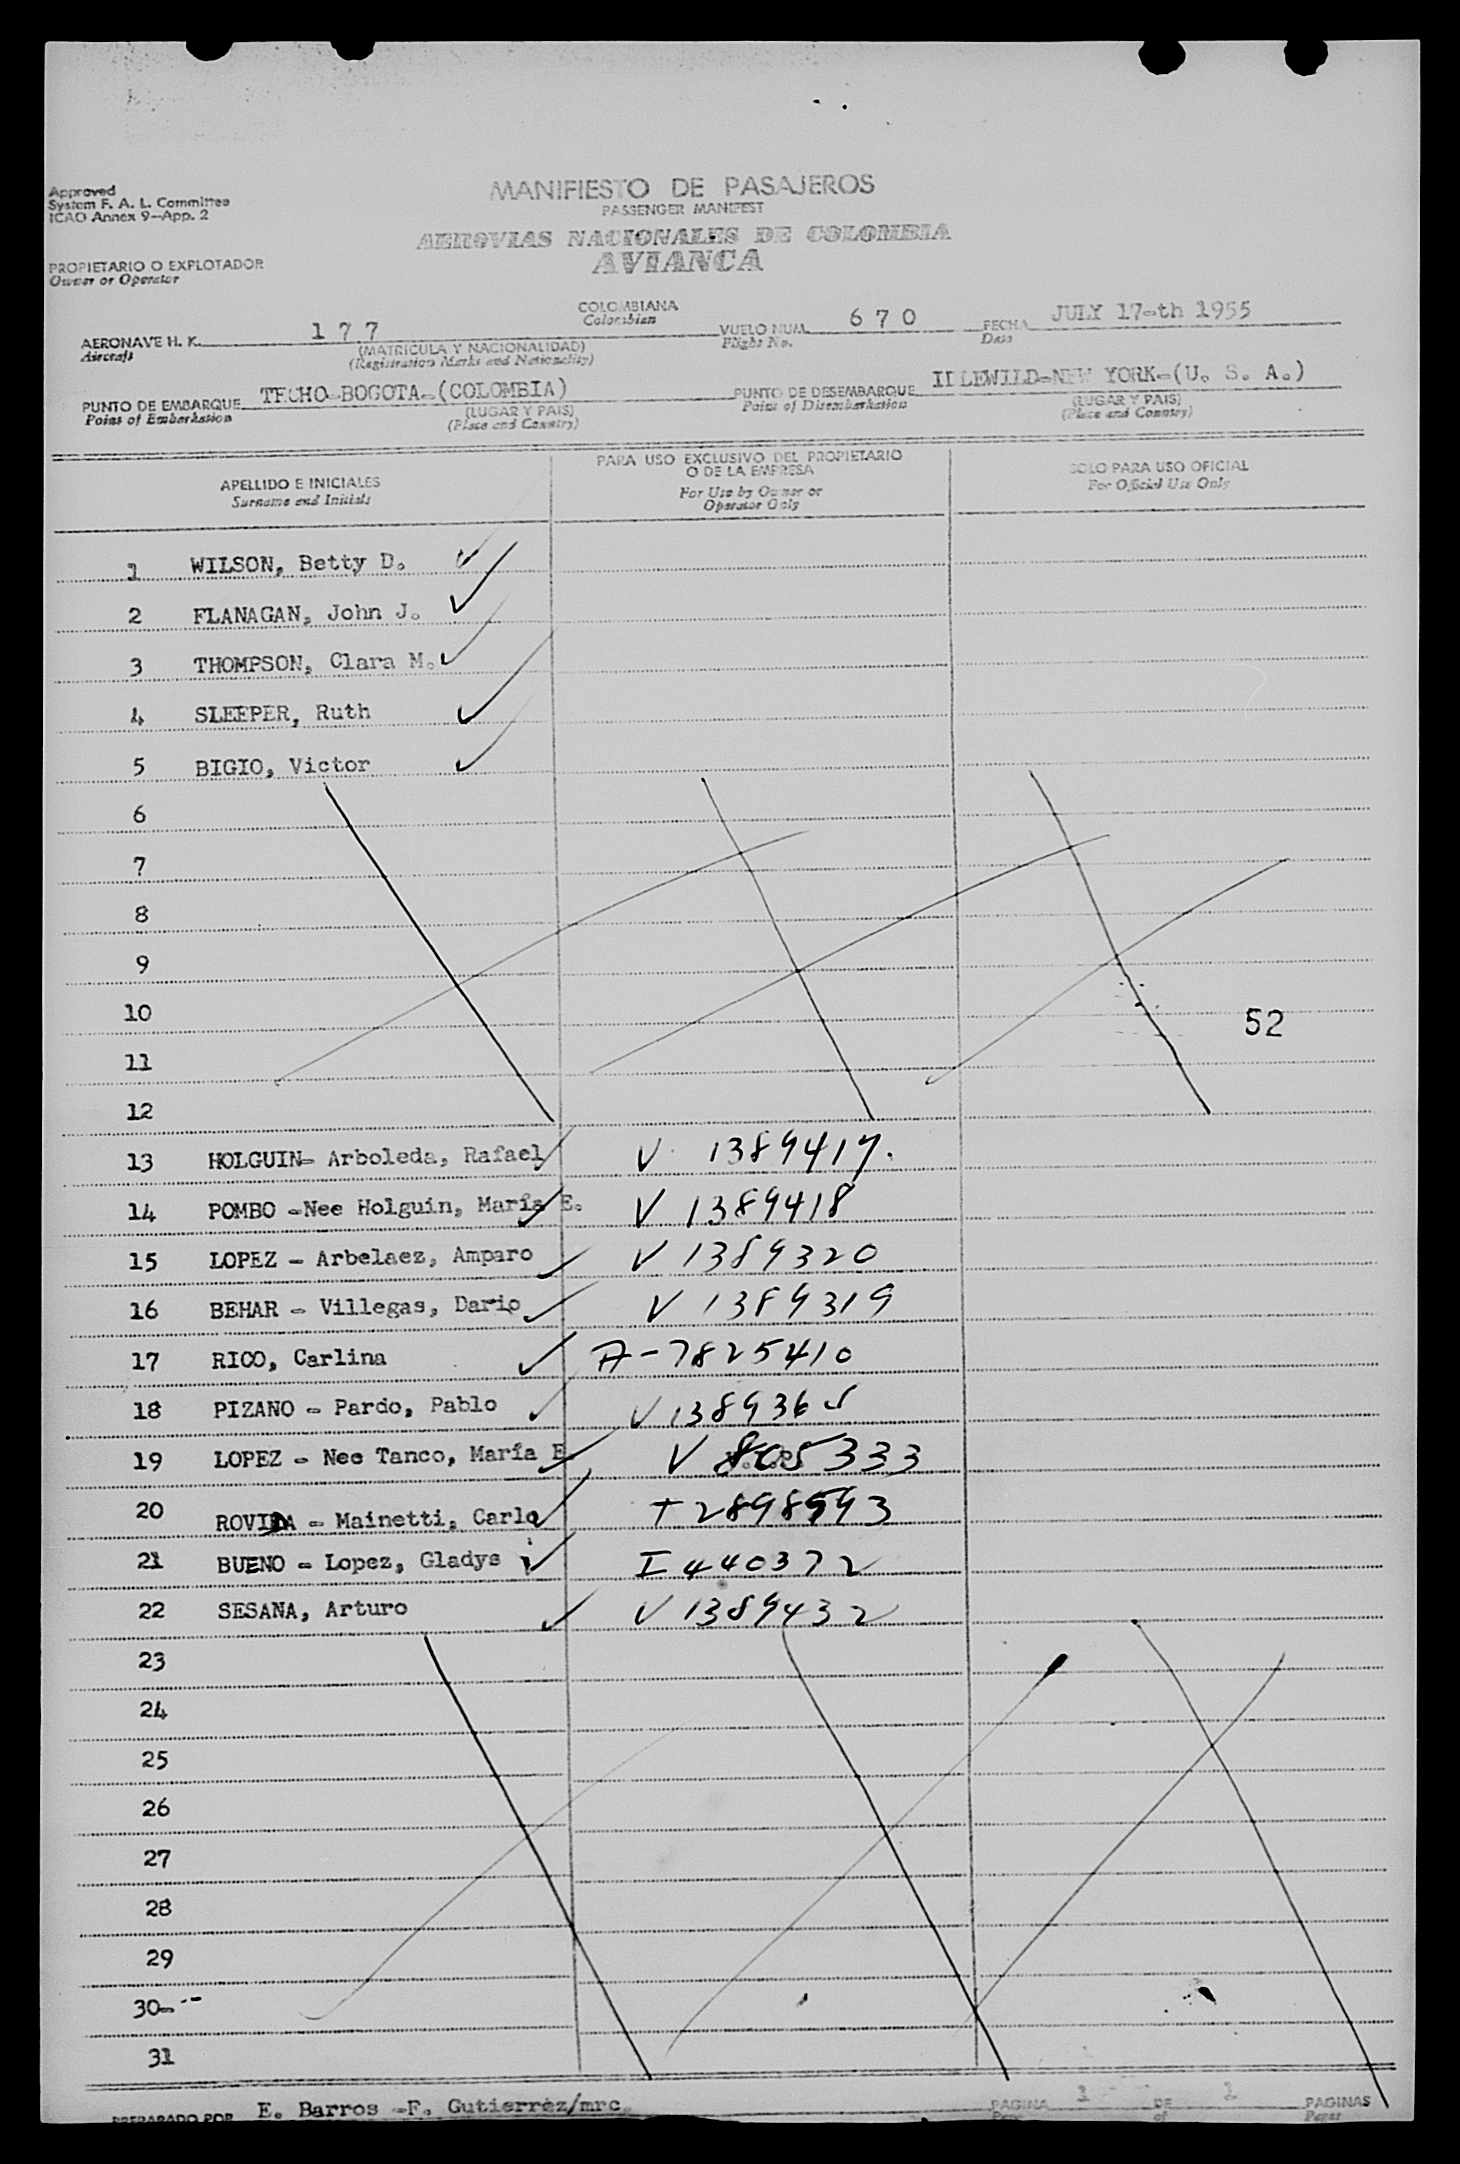 Approved
System F. A. L. Committee
ICAO Annex 9-App. 2
MANIFIESTO DE PASAJEROS
PASSENGER MANIFEST
AEROVIAS NACIONALES DE COLOMBIA
AVIANCA
PROPIETARIO O EXPLOTADOR
Owner or Operator
COLOMBIANA
Colombian
AERONAVE H. K. 177 VUELO NUM. 670 FECHA JULY 17-th 1955
Aircraft (MATRICULA Y NACIONALIDAD) Flight No. Date
(Registration Marks and Nationality)
PUNTO DE EMBARQUE TECHO-BOGOTA-(COLOMBIA) PUNTO DE DESEMBARQUE IDLEWILD-NEW YORK-(U. S. A.)
Point of Embarkation (LUGAR Y PAIS) Point of Disembarkation (LUGAR Y PAIS)
(Place and Country) (Place and Country)
APELLIDO E INICIALES PARA USO EXCLUSIVO DEL PROPIETARIO O DE LA EMPRESA SOLO PARA USO OFICIAL
Surname and Initials For Use by Owner or Operator Only For Official Use Only
1 WILSON, Betty D.
2 FLANAGAN, John J.
3 THOMPSON, Clara M.
4 SLEEPER, Ruth
5 BIGIO, Victor
6
7
8
9
10
52
11
12
13 HOLGUIN- Arboleda, Rafael V 1389417.
14 POMBO -Nee Holguin, María E. V 1389418
15 LOPEZ - Arbelaez, Amparo V 1389320
16 BEHAR - Villegas, Dario V 1389319
17 RICO, Carlina A-7825410
18 PIZANO - Pardo, Pablo
19 LOPEZ - Nee Tanco, María E. V 805333
20 ROVIDA - Mainetti, Carlo
21 BUENO - Lopez, Gladys I 440372
22 SESANA, Arturo V 1389432
23
24
25
26
27
28
29
30-
31
PREPARADO POR E. Barros -F. Gutierrez/mrc. PAGINA 1 DE 1 PAGINAS
Page of Pages